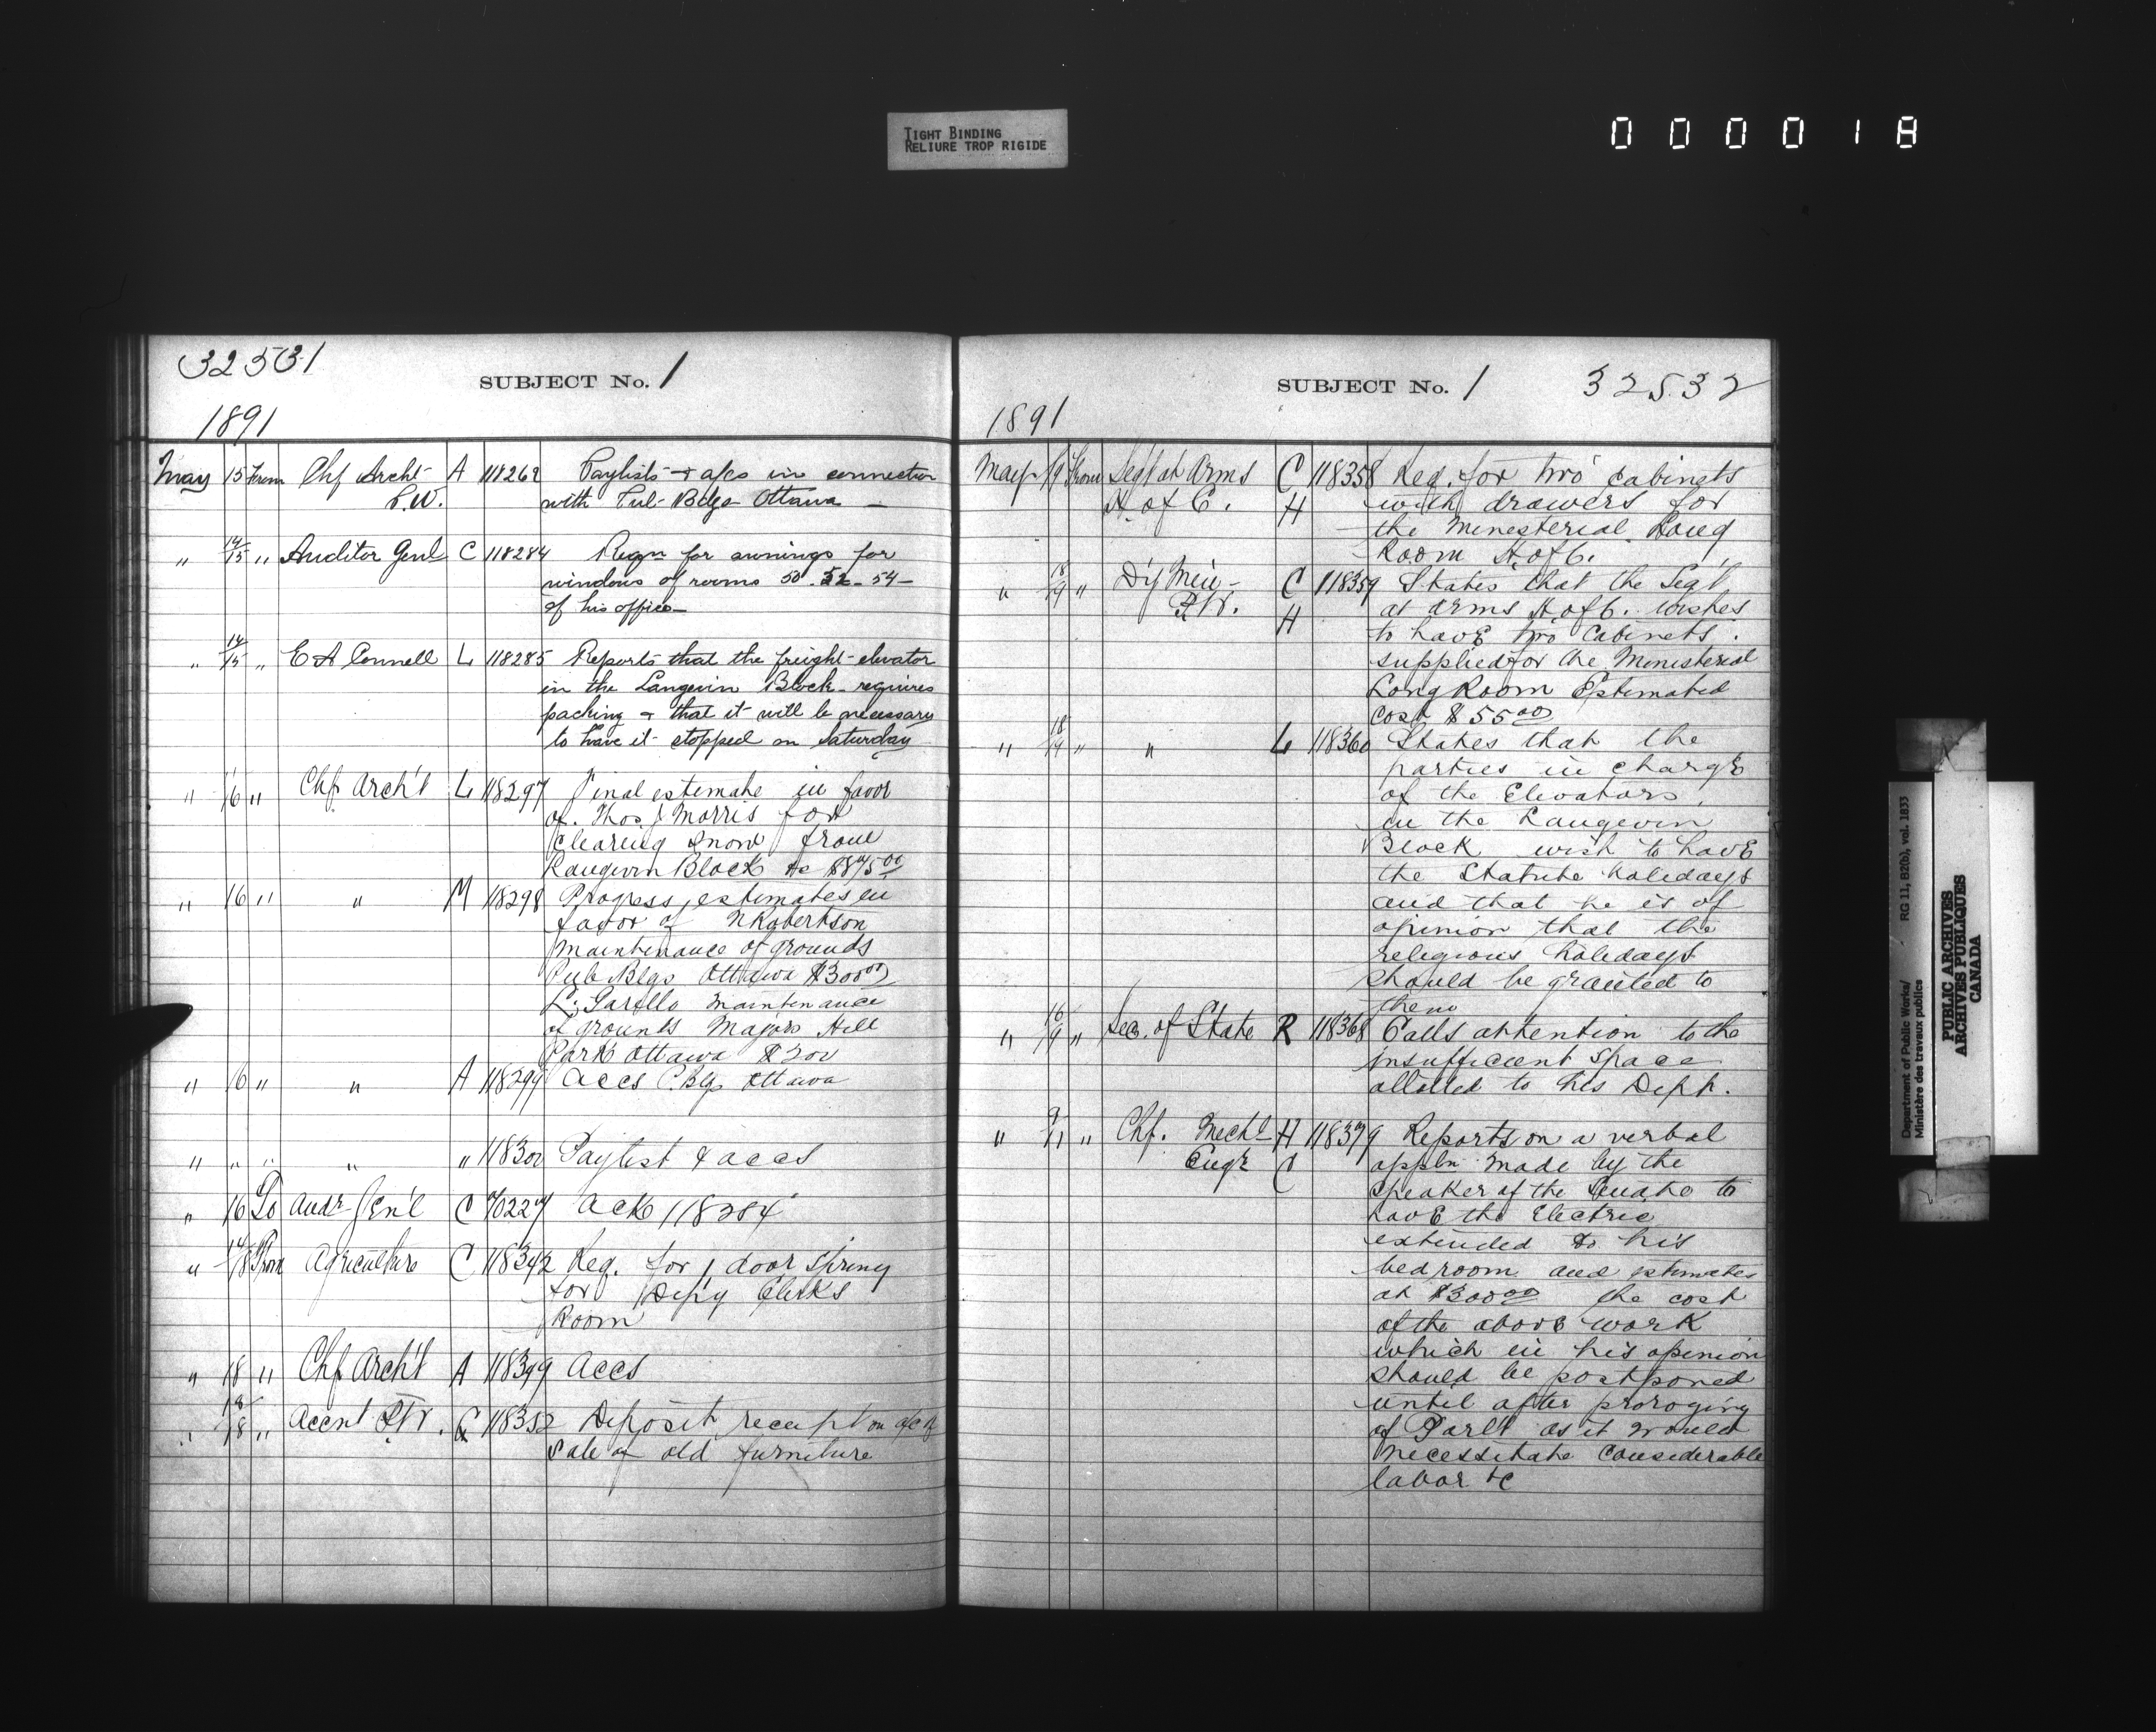 TIGHT BINDING
RELIURE TROP RIGIDE
000018
32531
SUBJECT No. 1
1891
May 15 From Chf Archt A 118262 Paylists & a/cs in connection
P.W. with Pub Bdgs Ottawa —
" 14/15 " Auditor Genl C 118284 Reqn for awnings for
windows of rooms 50 - 52 - 54 -
of his office —
" 14/15 " E A Connell L 118285 Reports that the freight elevator
in the Langevin Block requires
packing & that it will be necessary
to have it stopped on Saturday
" 16 " Chf Arch't L 118297 Final estimate in favor
of Thos J Morris for
clearing snow from
Langevin Block &c
" 16 " " M 118298 Progress estimates in
favor of N Robertson
maintenance of grounds
Pub Blgs Ottawa $300 00
maintenance
of grounds Majors Hill
Park Ottawa $200
" 16 " " A 118299 Accs P. Blgs Ottawa
" " " " " 118300 Paylist & accs
" 16 To Audr Gen'l C Ack 118284
" 14/18 From Agriculture C 118342 Req. for 1 door spring
for Dep'y Clerks
Room
" 18 " Chf Arch't A 118349 Accs
" 18/18 " Accnt P.W. C 118352 Deposit receipt on a/c of
sale of old furniture
SUBJECT No. 1 32532
1891
May 19 From Segt at Arms C 118358 Req. for two cabinets
H. of C. H with drawers for
the Ministerial Long
Room H. of C.
" 18/19 " D'y Min C 118359 States that the Segt
P.W. H at Arms H. of C. wishes
to have two cabinets
supplied for the Ministerial
Long Room Estimated
cost $55 00
" 18/19 " " L 118360 States that the
parties in charge
of the Elevators
in the Langevin
Block wish to have
the Statute holidays
and that he is of
opinion that the
religious holidays
should be granted to
them
" 16/19 " Sec. of State R 118368 Calls attention to the
insufficient space
allotted to his Dept.
" 9/11 " Chf. Mech'l H 118379 Reports on a verbal
Eng'r C appln made by the
Speaker of the Senate to
have the Electric
extended to his
bedroom and estimates
at $300 00 the cost
of the above work
which in his opinion
should be postponed
until after proroging
of Parlt as it would
necessitate considerable
labor &c
Department of Public Works/
Ministère des travaux publics
RG 11, B2(b), vol. 1833
PUBLIC ARCHIVES
ARCHIVES PUBLIQUES
CANADA